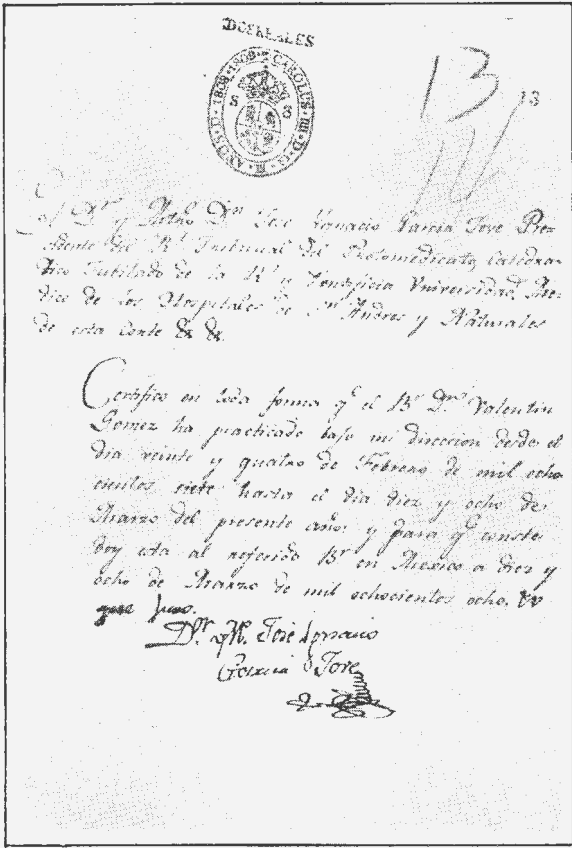 DOS REALES
CAROLUS · III · D · G · ANOS · D · 1808 · 1809
S S
13
13
El Dr. y Mtro. Dn. José Ygnacio Garcia Jove Pres-
idente del Rl. Tribunal del Protomedicato, Catedra-
tico Jubilado de la Rl. y Pontificia Universidad, Me-
dico de los Hospitales de Sn. Andres y Naturales
de esta Corte &a &a.
Certifico en toda forma qe. el Br. Dn. Valentin
Gomez ha practicado bajo mi direccion desde el
dia veinte y quatro de Febrero de mil ocho
cientos siete hasta el dia diez y ocho de
Marzo del presente año; y para qe. conste
doy esta al referido Br. en Mexico a diez y
ocho de Marzo de mil ochocientos ocho.
que juro.
Dr. y M. José Ignacio
Garcia Jove